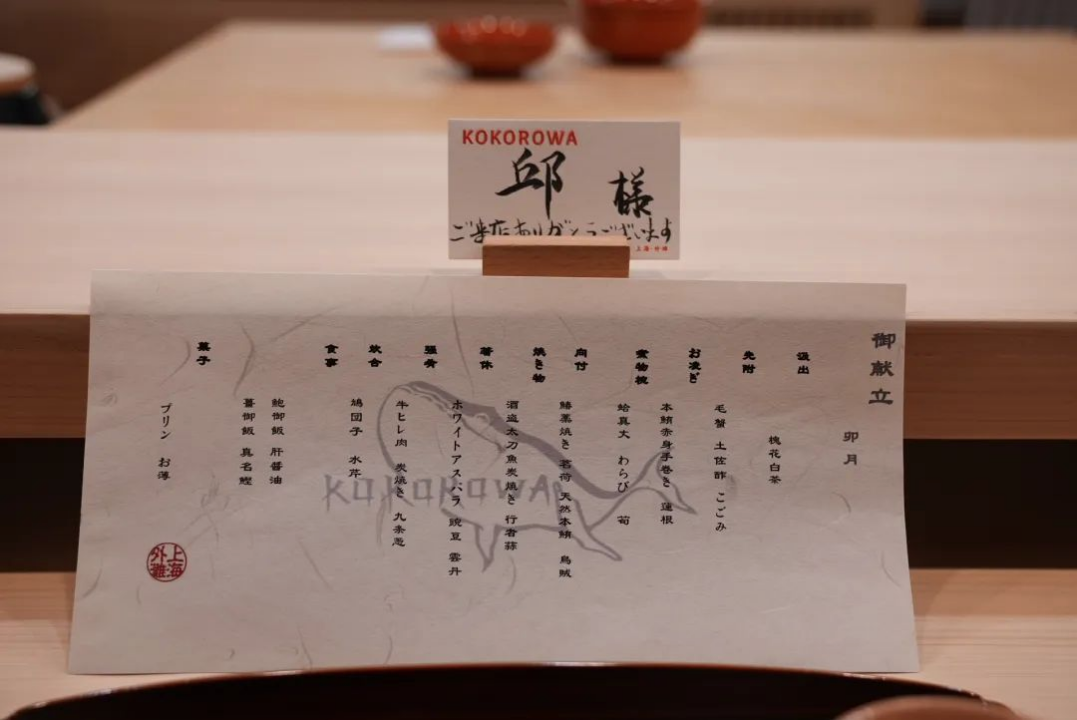 KOKOROWA
邱 様
ご来店ありがとうございます
上海·外灘
御献立
卯月
汲出
槐花白茶
先附
毛蟹 土佐酢 こごみ
お凌ぎ
本鮪赤身手巻き 蓮根
煮物椀
蛤真丈 わらび 筍
向付
鰆藁焼き 茗荷 天然本鮪 烏賊
焼き物
酒盗太刀魚炭焼き 行者蒜
箸休
ホワイトアスパラ 豌豆 雲丹
強肴
牛ヒレ肉 炭焼き 九条葱
炊合
鳩団子 水芹
食事
鮑御飯 肝醤油
御飯 真名鰹
菓子
プリン お薄
KOKOROWA
上海外灘